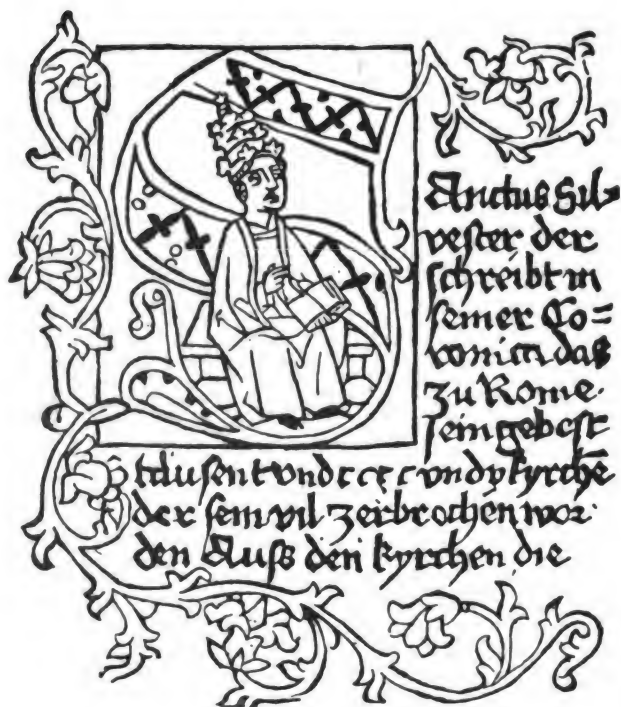 SAnctus Sil=
vester der
schreibt in
seiner Co=
ronica das
zu Rome.
sein gebest
tausent vnd cccc vnd v kyrchē
der sein vil zerbrochen wor
den Auss den kyrchen die